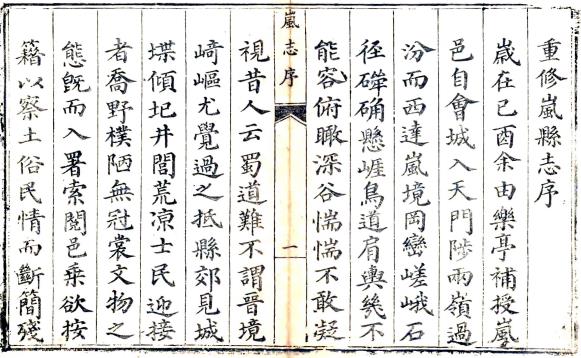 重修嵐縣志序
歲在己酉余由樂亭補授嵐
邑自會城入天門陟兩嶺過
汾而西達嵐境岡巒嵯峨石
徑硉确懸崖鳥道肩輿幾不
能容俯瞰深谷惴惴不敢凝
嵐志序
一
視昔人云蜀道難不謂晉境
崎嶇尤覺過之抵縣郊見城
堞傾圮井閭荒凉士民迎接
者喬野樸陋無冠裳文物之
態旣而入署索閱邑乘欲按
籍以察土俗民情而斷簡殘